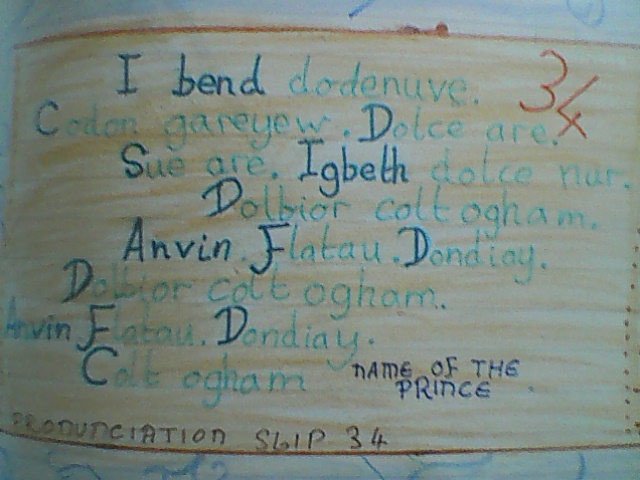 I bend dodenuve. 34
Codon gareyew. Dolce are.
Sue are. Igbeth dolce nur.
Dolbior colt ogham.
Anvin. Flatau. Dondiay.
Dolbior colt ogham.
Anvin Flatau. Dondiay.
Colt ogham NAME OF THE
PRINCE.
PRONUNCIATION SLIP 34